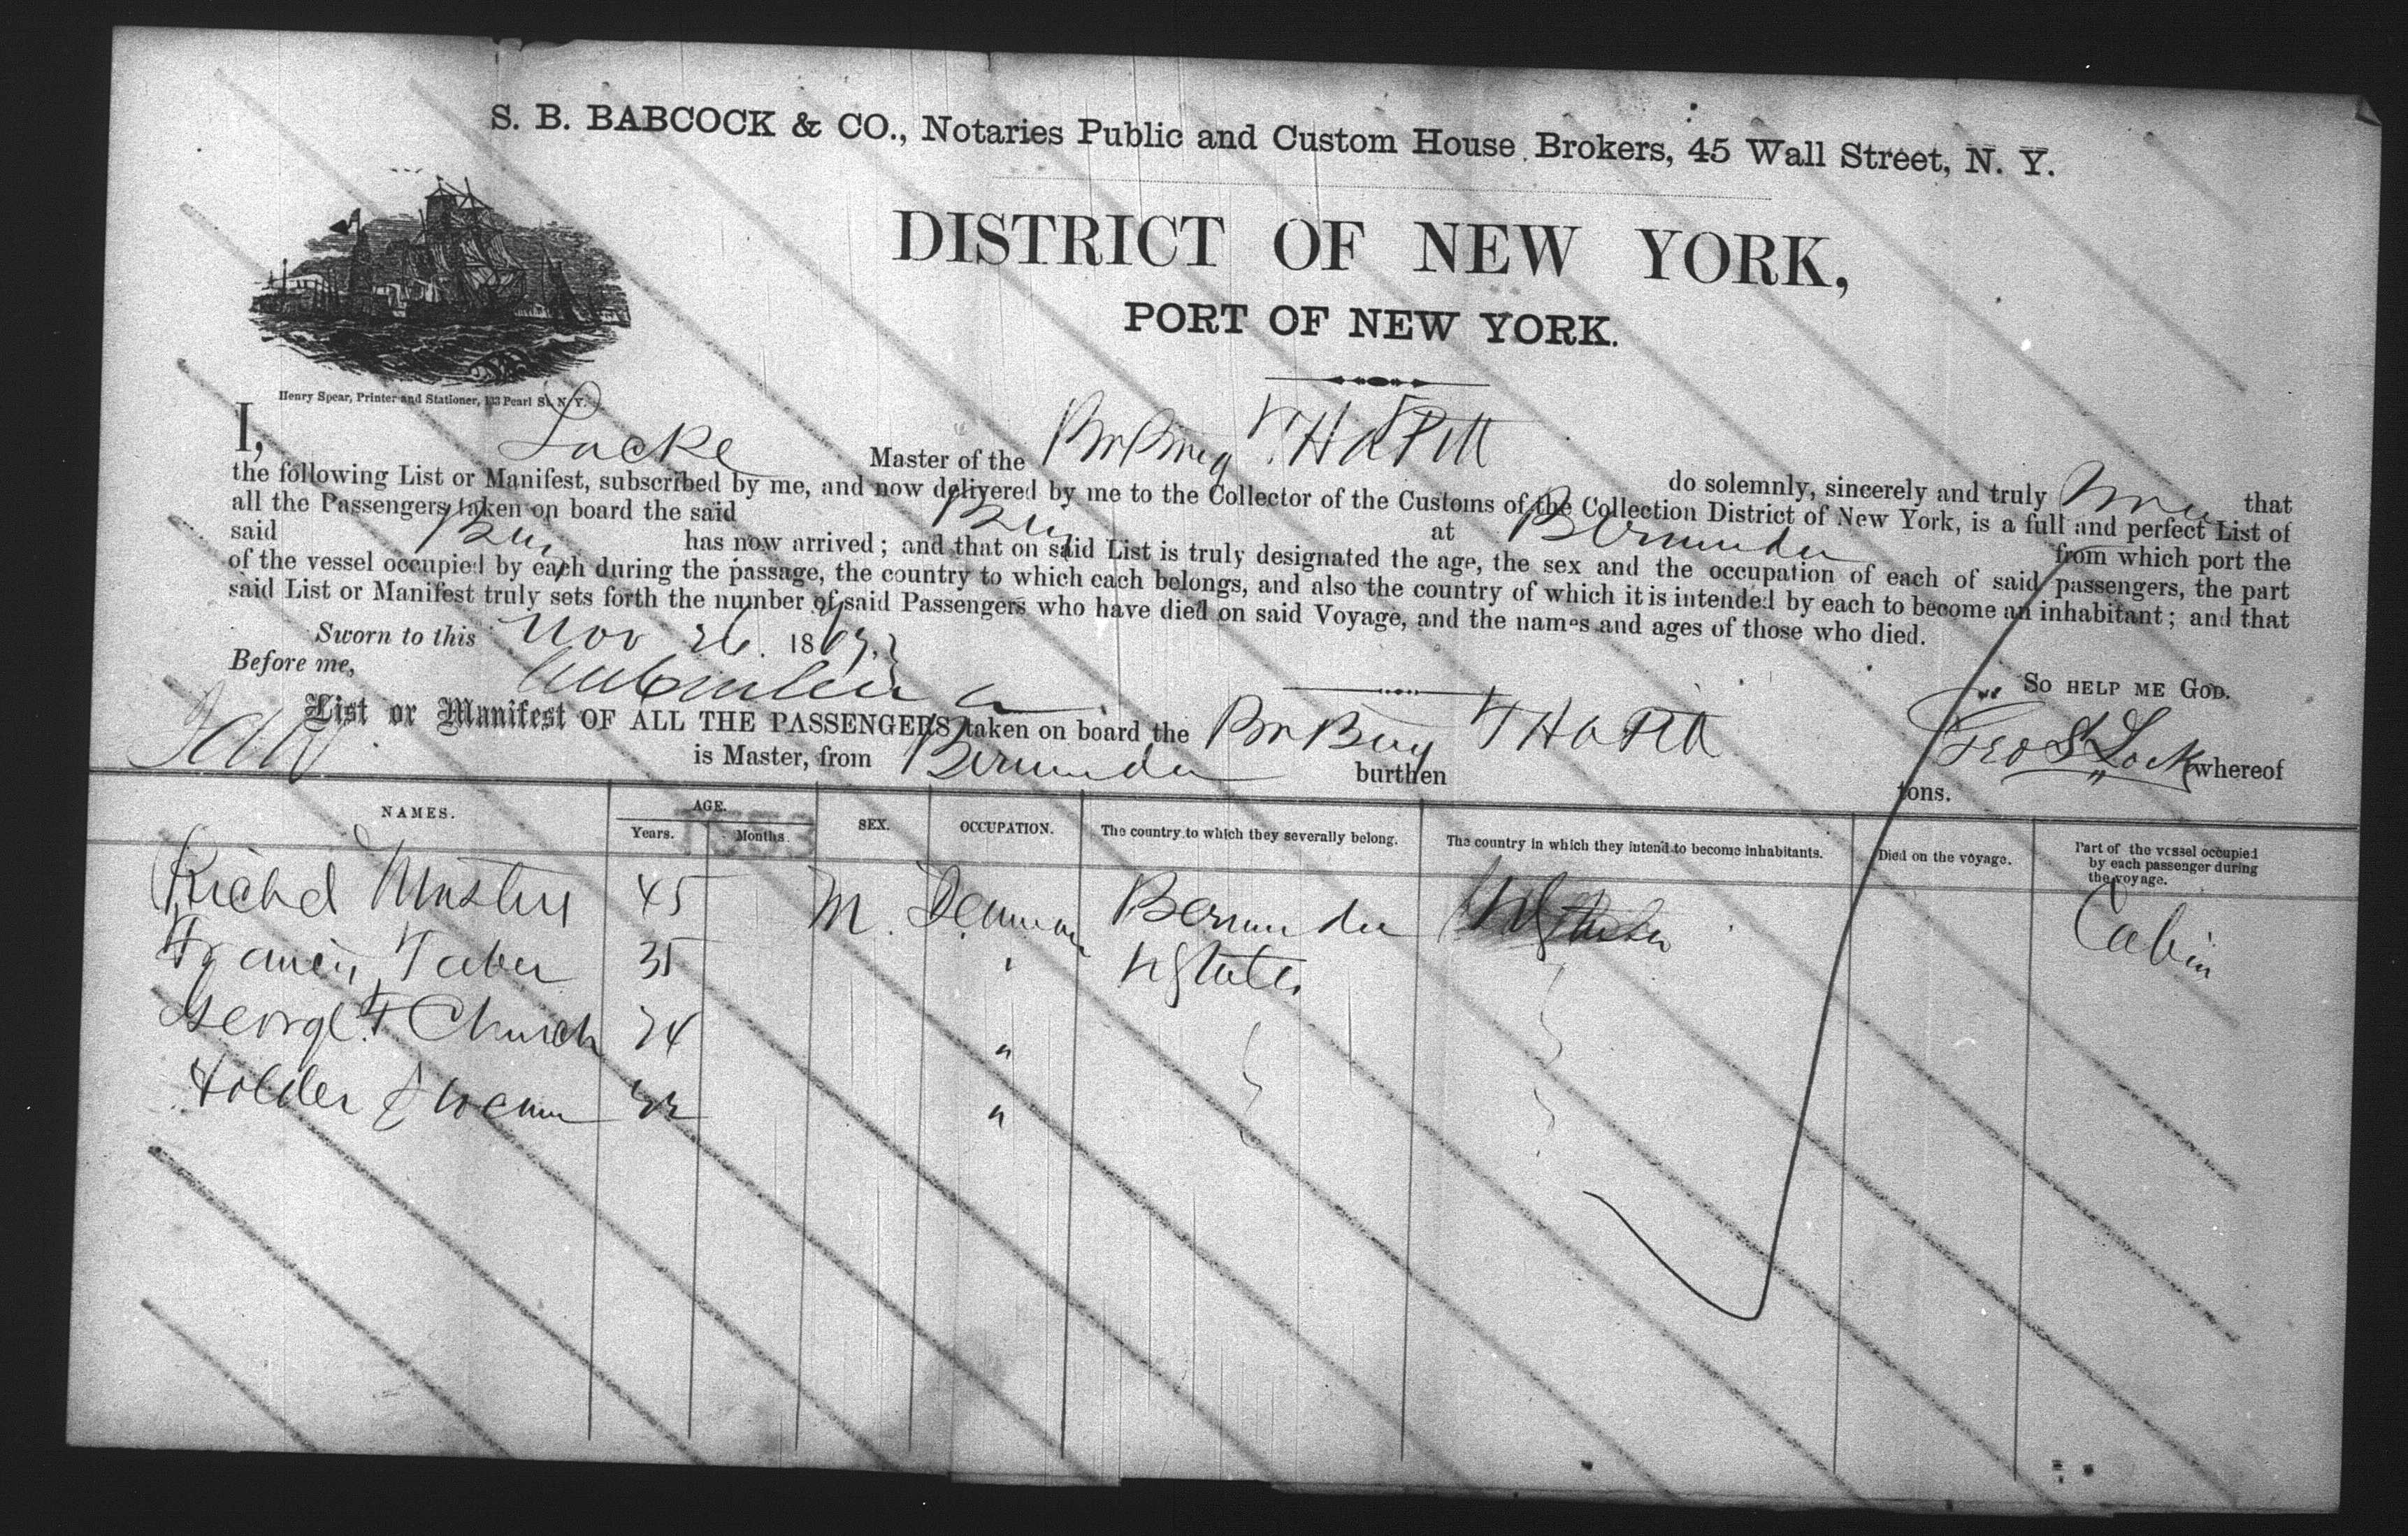 S. B. BABCOCK & CO., Notaries Public and Custom House Brokers, 45 Wall Street, N. Y.
DISTRICT OF NEW YORK,
PORT OF NEW YORK.
Henry Spear, Printer and Stationer, 133 Pearl St. N. Y.
I, Locke Master of the Br Brig T H A Pitt do solemnly, sincerely and truly that
the following List or Manifest, subscribed by me, and now delivered by me to the Collector of the Customs of the Collection District of New York, is a full and perfect List of
all the Passengers taken on board the said Brig at Bermuda from which port the
said Brig has now arrived; and that on said List is truly designated the age, the sex and the occupation of each of said passengers, the part
of the vessel occupied by each during the passage, the country to which each belongs, and also the country of which it is intended by each to become an inhabitant; and that
said List or Manifest truly sets forth the number of said Passengers who have died on said Voyage, and the names and ages of those who died.
Sworn to this Nov 26. 186
Before me,
So HELP ME GOD.
Geo S Lock
List or Manifest OF ALL THE PASSENGERS taken on board the Br Brig T H A Pitt whereof
is Master, from Bermuda burthen tons.
NAMES. AGE. SEX. OCCUPATION. The country to which they severally belong. The country in which they intend to become inhabitants. Died on the voyage. Part of the vessel occupied by each passenger during the voyage.
Years. Months.
Richd Masters 45 M. Seaman Bermuda Cabin
Francis Taber 35 ' U States
George F Church 24 "
Holder "